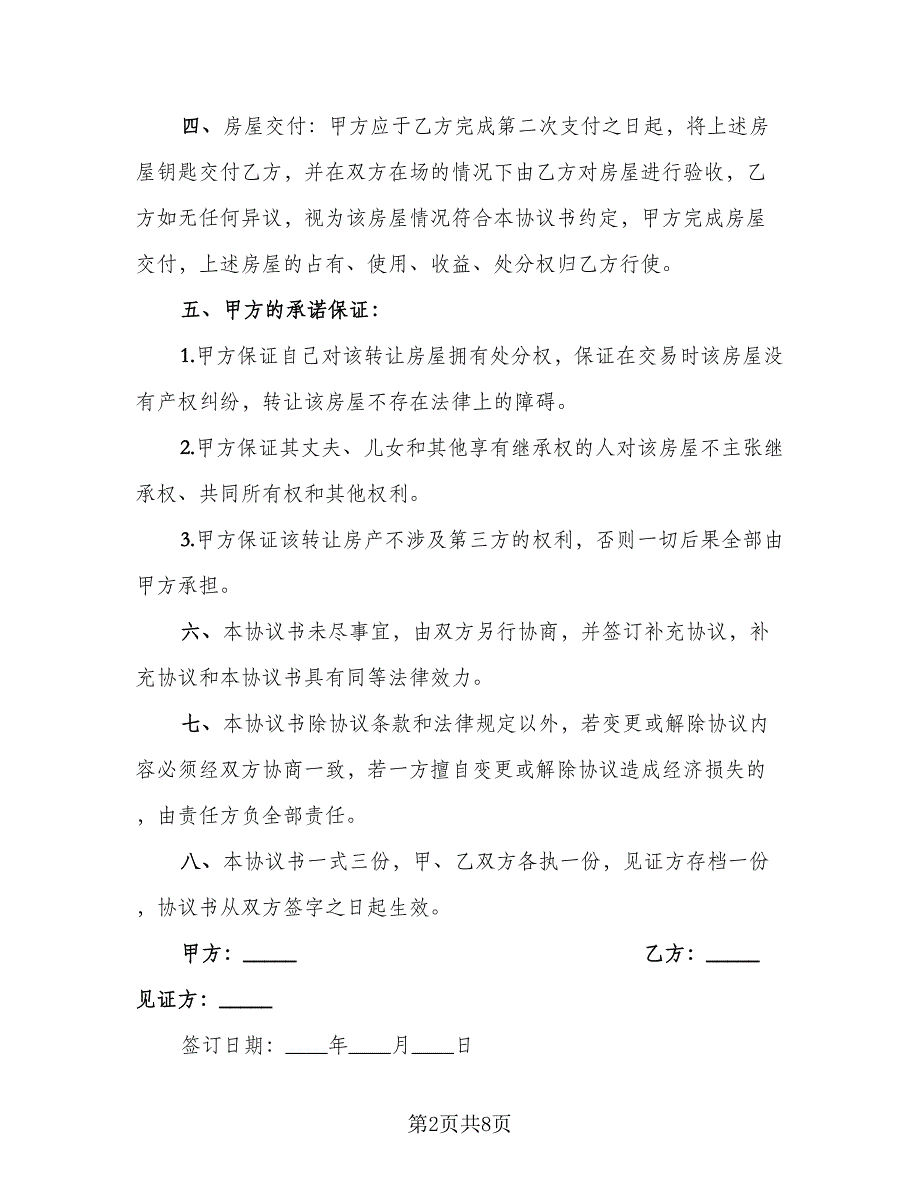 四、房屋交付：甲方应于乙方完成第二次支付之日起，将上述房
屋钥匙交付乙方，并在双方在场的情况下由乙方对房屋进行验收，乙
方如无任何异议，视为该房屋情况符合本协议书约定，甲方完成房屋
交付，上述房屋的占有、使用、收益、处分权归乙方行使。
五、甲方的承诺保证：
1.甲方保证自己对该转让房屋拥有处分权，保证在交易时该房屋没
有产权纠纷，转让该房屋不存在法律上的障碍。
2.甲方保证其丈夫、儿女和其他享有继承权的人对该房屋不主张继
承权、共同所有权和其他权利。
3.甲方保证该转让房产不涉及第三方的权利，否则一切后果全部由
甲方承担。
六、本协议书未尽事宜，由双方另行协商，并签订补充协议，补
充协议和本协议书具有同等法律效力。
七、本协议书除协议条款和法律规定以外，若变更或解除协议内
容必须经双方协商一致，若一方擅自变更或解除协议造成经济损失的
，由责任方负全部责任。
八、本协议书一式三份，甲、乙双方各执一份，见证方存档一份
，协议书从双方签字之日起生效。
甲方：_____ 乙方：_____
见证方：_____
签订日期：____年____月____日
第2页共8页